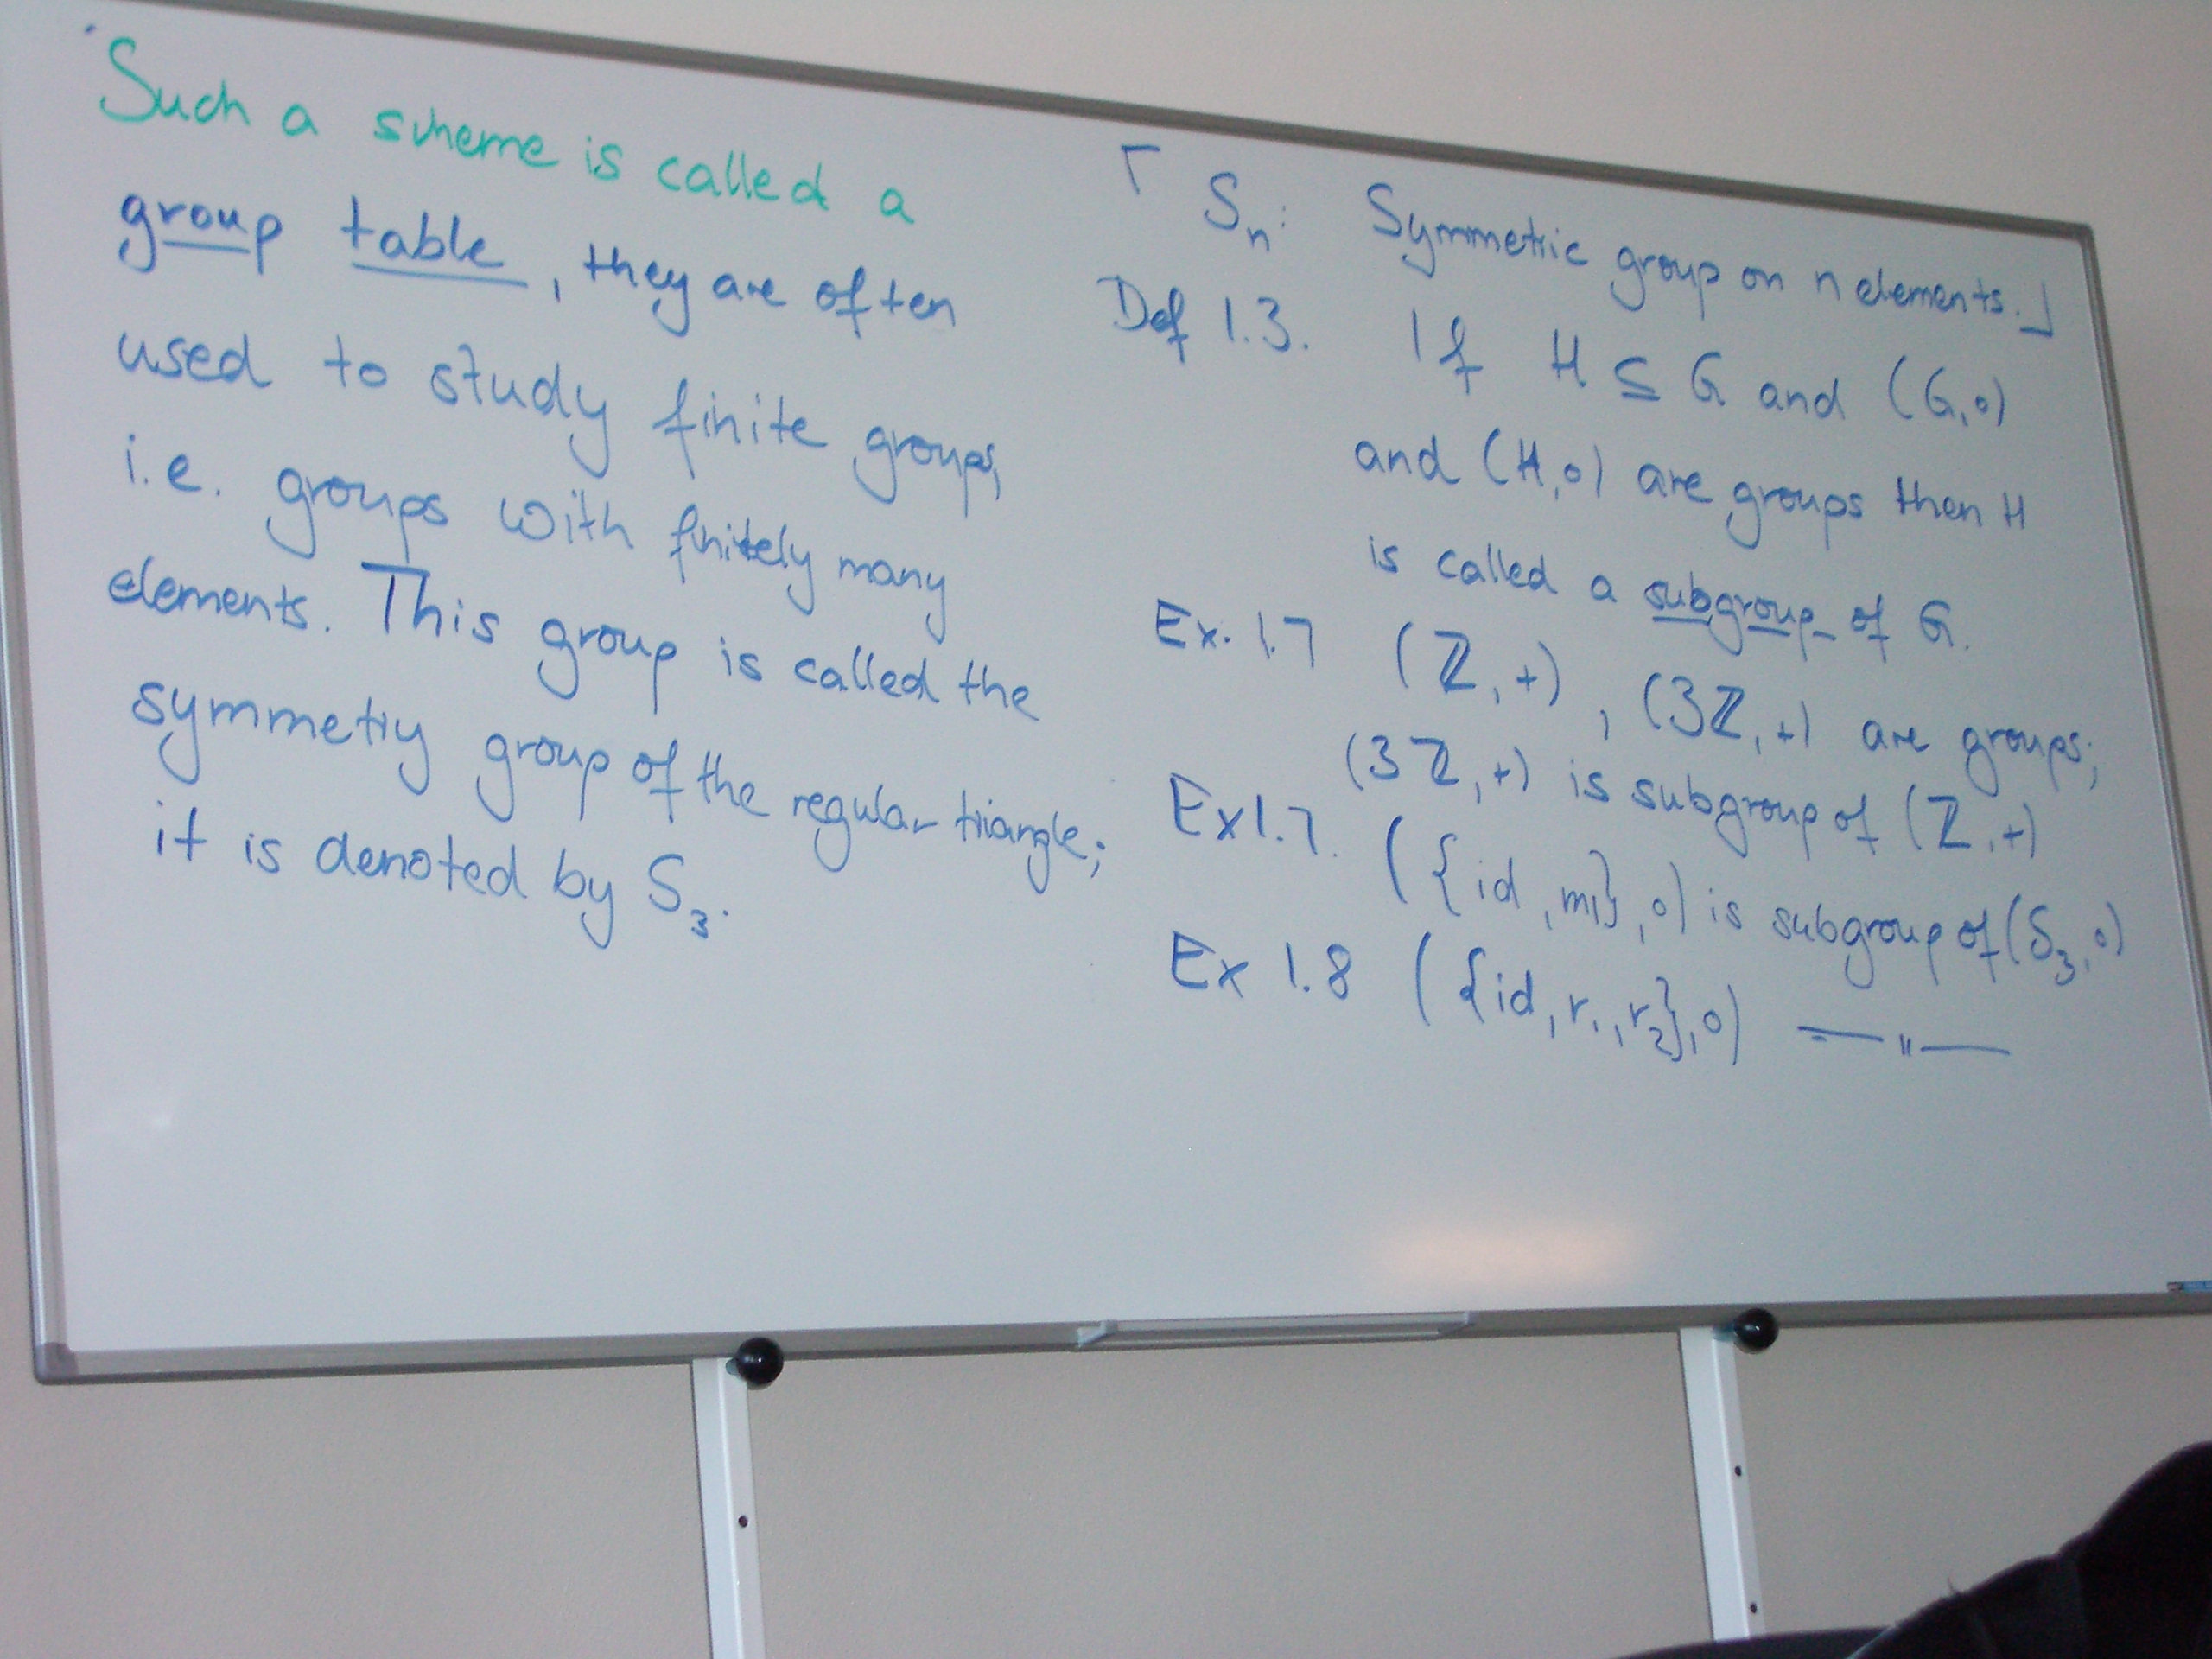 Such a scheme is called a
group table, they are often
used to study finite groups,
i.e. groups with finitely many
elements. This group is called the
symmetry group of the regular triangle;
it is denoted by S₃.
⌈ Sₙ: Symmetric group on n elements.⌋
Def 1.3. If H ⊆ G and (G,∘)
and (H,∘) are groups then H
is called a subgroup of G.
Ex. 1.7 (ℤ,+), (3ℤ,+) are groups;
(3ℤ,+) is subgroup of (ℤ,+)
Ex 1.7. ({id, m₁},∘) is subgroup of (S₃,∘)
Ex 1.8 ({id, r₁, r₂},∘) —〃—